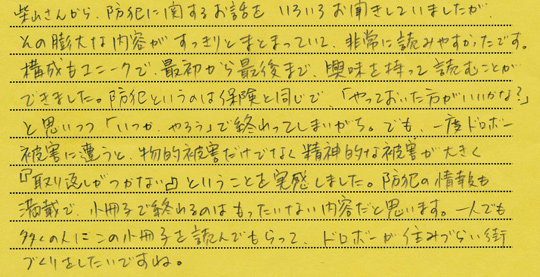 柴山さんから、防犯に関するお話を いろいろ お聞きしていましたが、
その膨大な内容が すっきりと まとまっていて、非常に読みやすかったです。
構成もユニークで、最初から最後まで、興味を持って 読むことが
できました。防犯というのは保険と同じで、「やっておいた方がいいかな?」
と思いつつ「いつか、やろう」で終わってしまいがち。でも、一度ドロボー
被害に遭うと、物的被害だけでなく 精神的な被害が 大きく
『取り返しがつかない』ということを実感しました。防犯の情報も
満載で、小冊子で終わるのは もったいない内容だと思います。一人でも
多くの人に この小冊子を 読んでもらって、ドロボーが 住みづらい街
づくりをしたいですね。